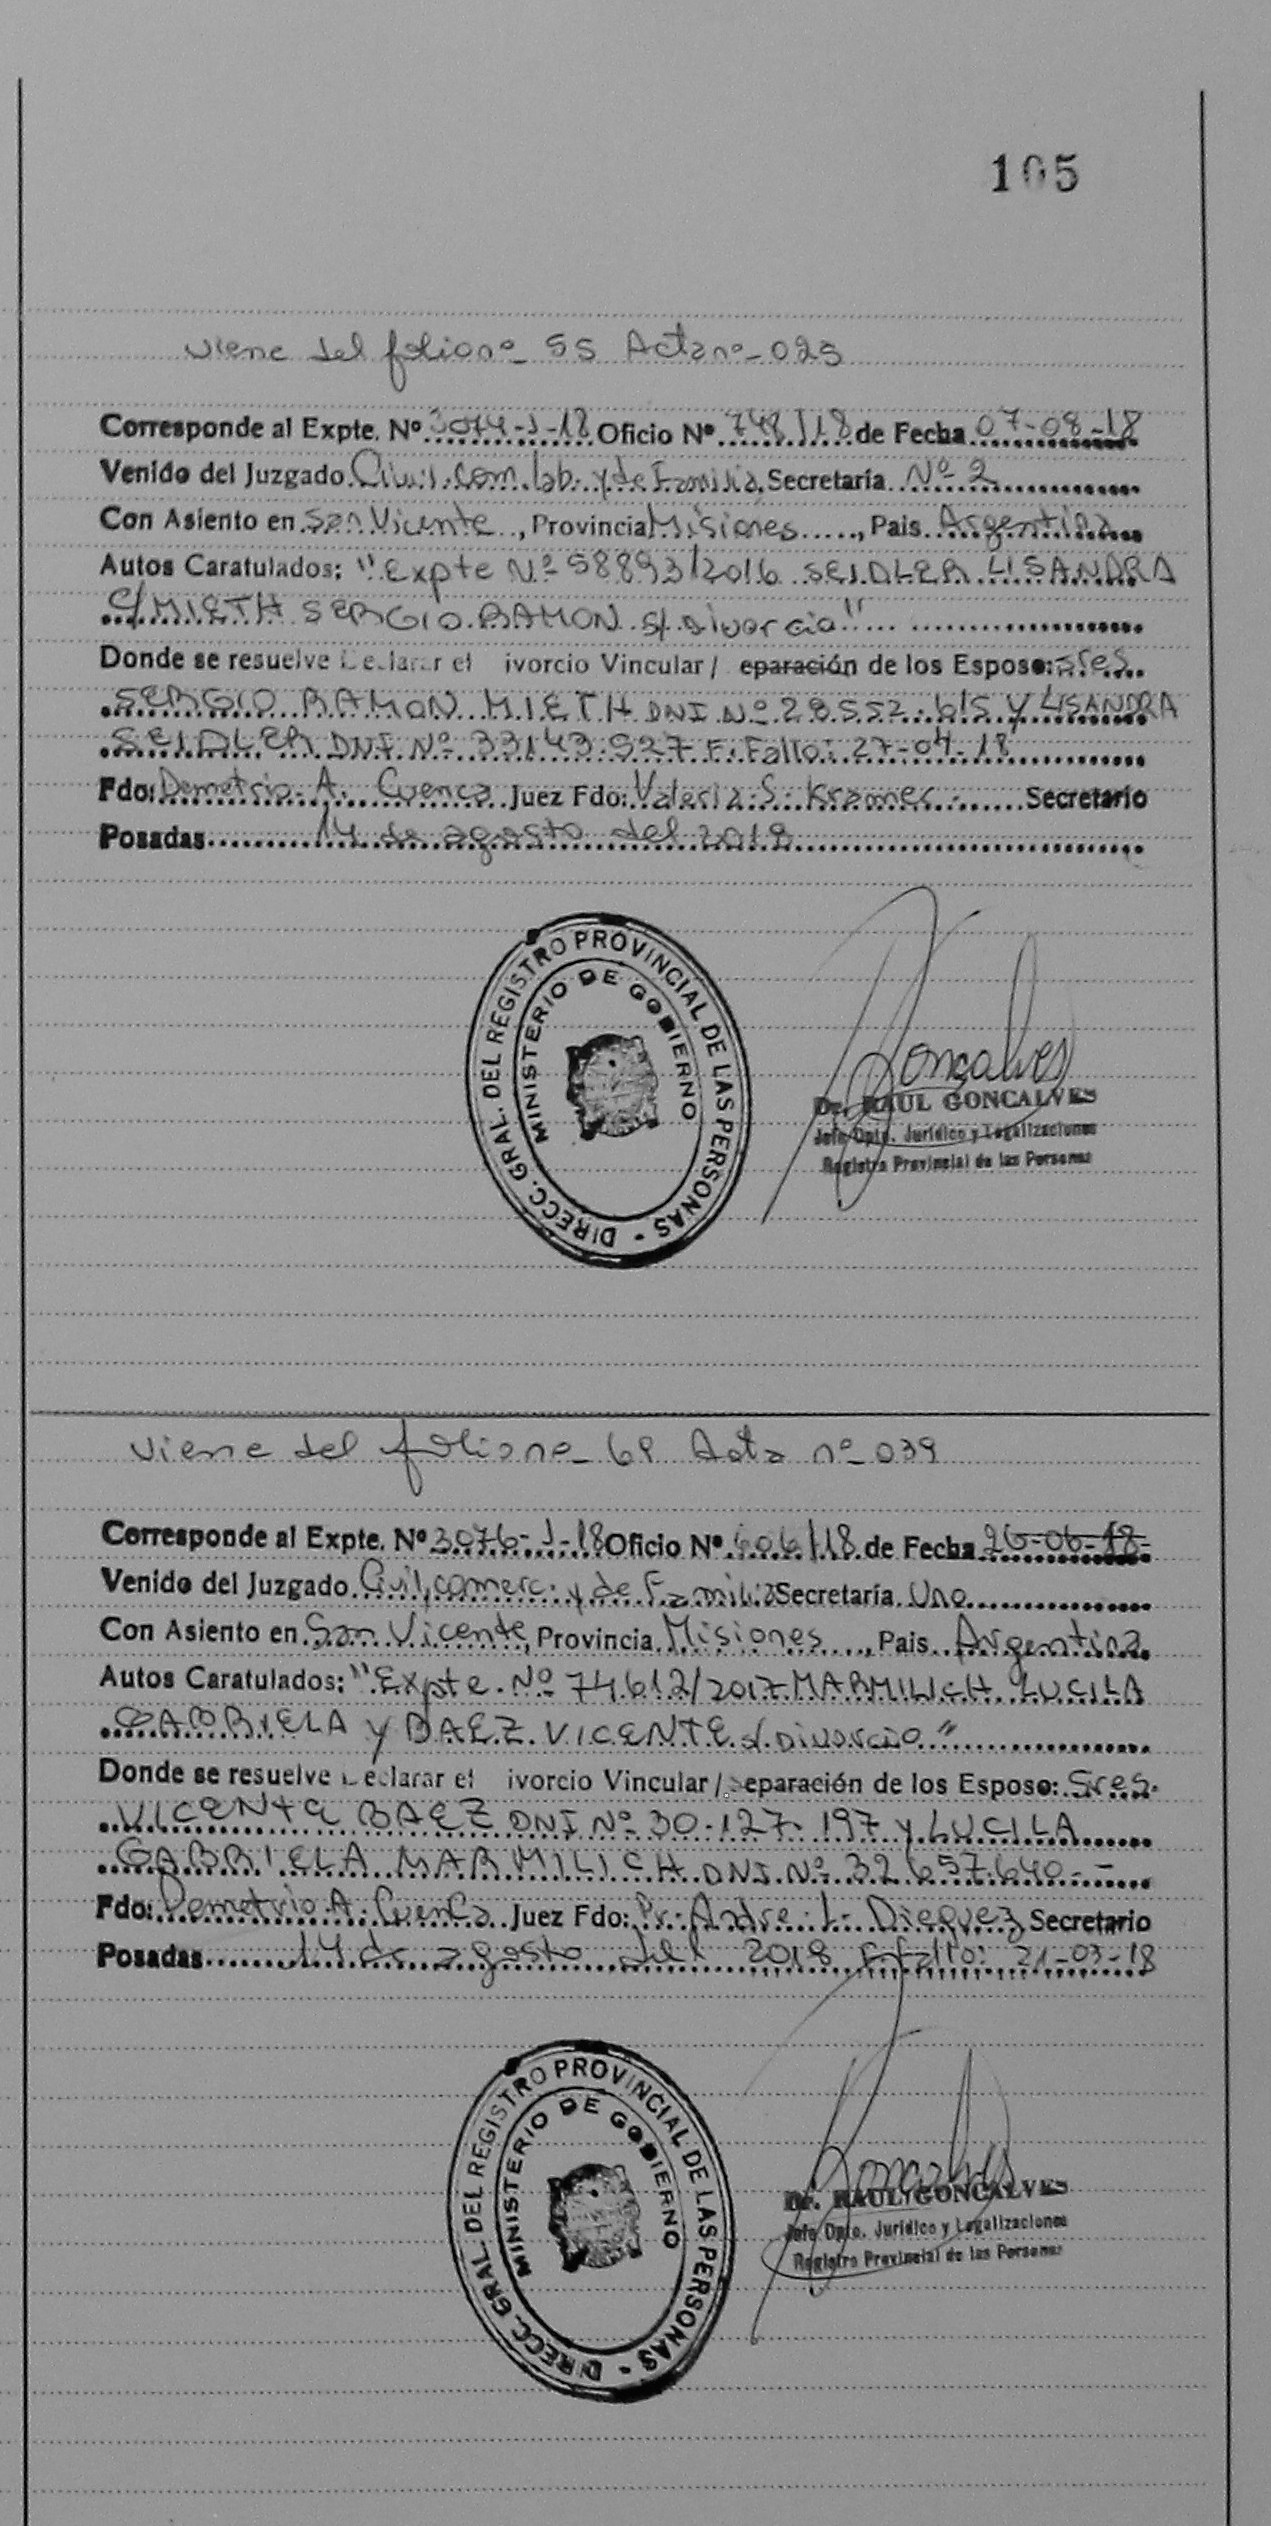 105
Viene del folio nº 55 Acta nº 025
Corresponde al Expte. Nº 3074-J-18 Oficio Nº 748/18 de Fecha 07-08-18
Venido del Juzgado Civil. Com. lab. y de Familia, Secretaría Nº 2
Con Asiento en San Vicente, Provincia Misiones, Pais Argentina
Autos Caratulados: "Expte Nº 58893/2016 SEIDLER LISANDRA
C/ MIETH SERGIO RAMON S/ Divorcio"
Donde se resuelve Declarar el ivorcio Vincular / eparación de los Esposo: Sres.
SERGIO RAMON MIETH DNI Nº 28.552.615 Y LISANDRA
SEIDLER DNI Nº 33143.927 F. Fallo: 27-04-18
Fdo: Demetrio A. Cuenca Juez Fdo: Valeria S. Kramer Secretario
Posadas 14 de agosto del 2018
DIRECC. GRAL. DEL REGISTRO PROVINCIAL DE LAS PERSONAS -
MINISTERIO DE GOBIERNO
Goncalves
Dr. RAUL GONCALVES
Jefe Dpto. Jurídico y Legalizaciones
Registro Provincial de las Personas
Viene del folio nº 69 Acta nº 039
Corresponde al Expte. Nº 3076-J-18 Oficio Nº 606/18 de Fecha 26-06-18-
Venido del Juzgado Civil, comerc. y de Familia Secretaría Uno
Con Asiento en San Vicente, Provincia Misiones, Pais Argentina
Autos Caratulados: "Expte. Nº 74612/2017 MARMILICH LUCILA
GABRIELA y BAEZ VICENTE s/ Divorcio"
Donde se resuelve Declarar el ivorcio Vincular / Separación de los Esposo: Sres.
VICENTE BAEZ DNI Nº 30.127.197 y LUCILA
GABRIELA MARMILICH DNI Nº 32.657.640.-
Fdo: Demetrio A. Cuenca Juez Fdo: Dr. Andre L. Dieguez Secretario
Posadas 14 de agosto del 2018 F. Fallo: 21-03-18
DIRECC. GRAL. DEL REGISTRO PROVINCIAL DE LAS PERSONAS -
MINISTERIO DE GOBIERNO
Goncalves
Dr. RAUL GONCALVES
Jefe Dpto. Jurídico y Legalizaciones
Registro Provincial de las Personas